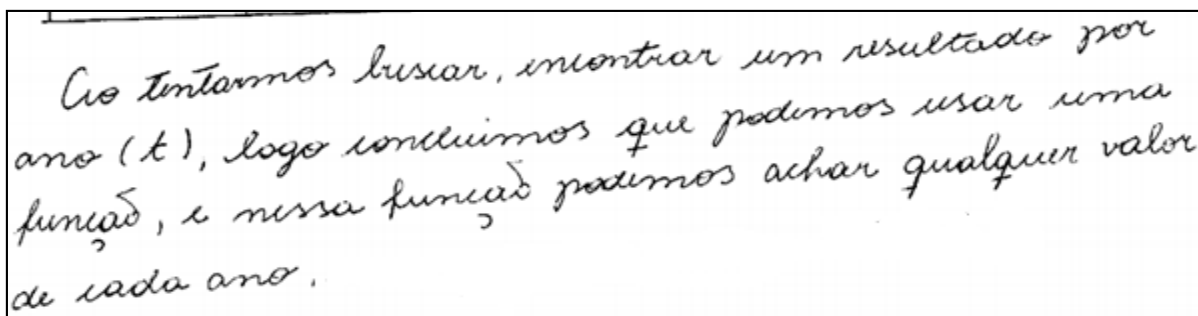 Ao tentarmos buscar, encontrar um resultado por
ano (t), logo concluimos que podemos usar uma
função, e nessa função podemos achar qualquer valor
de cada ano.